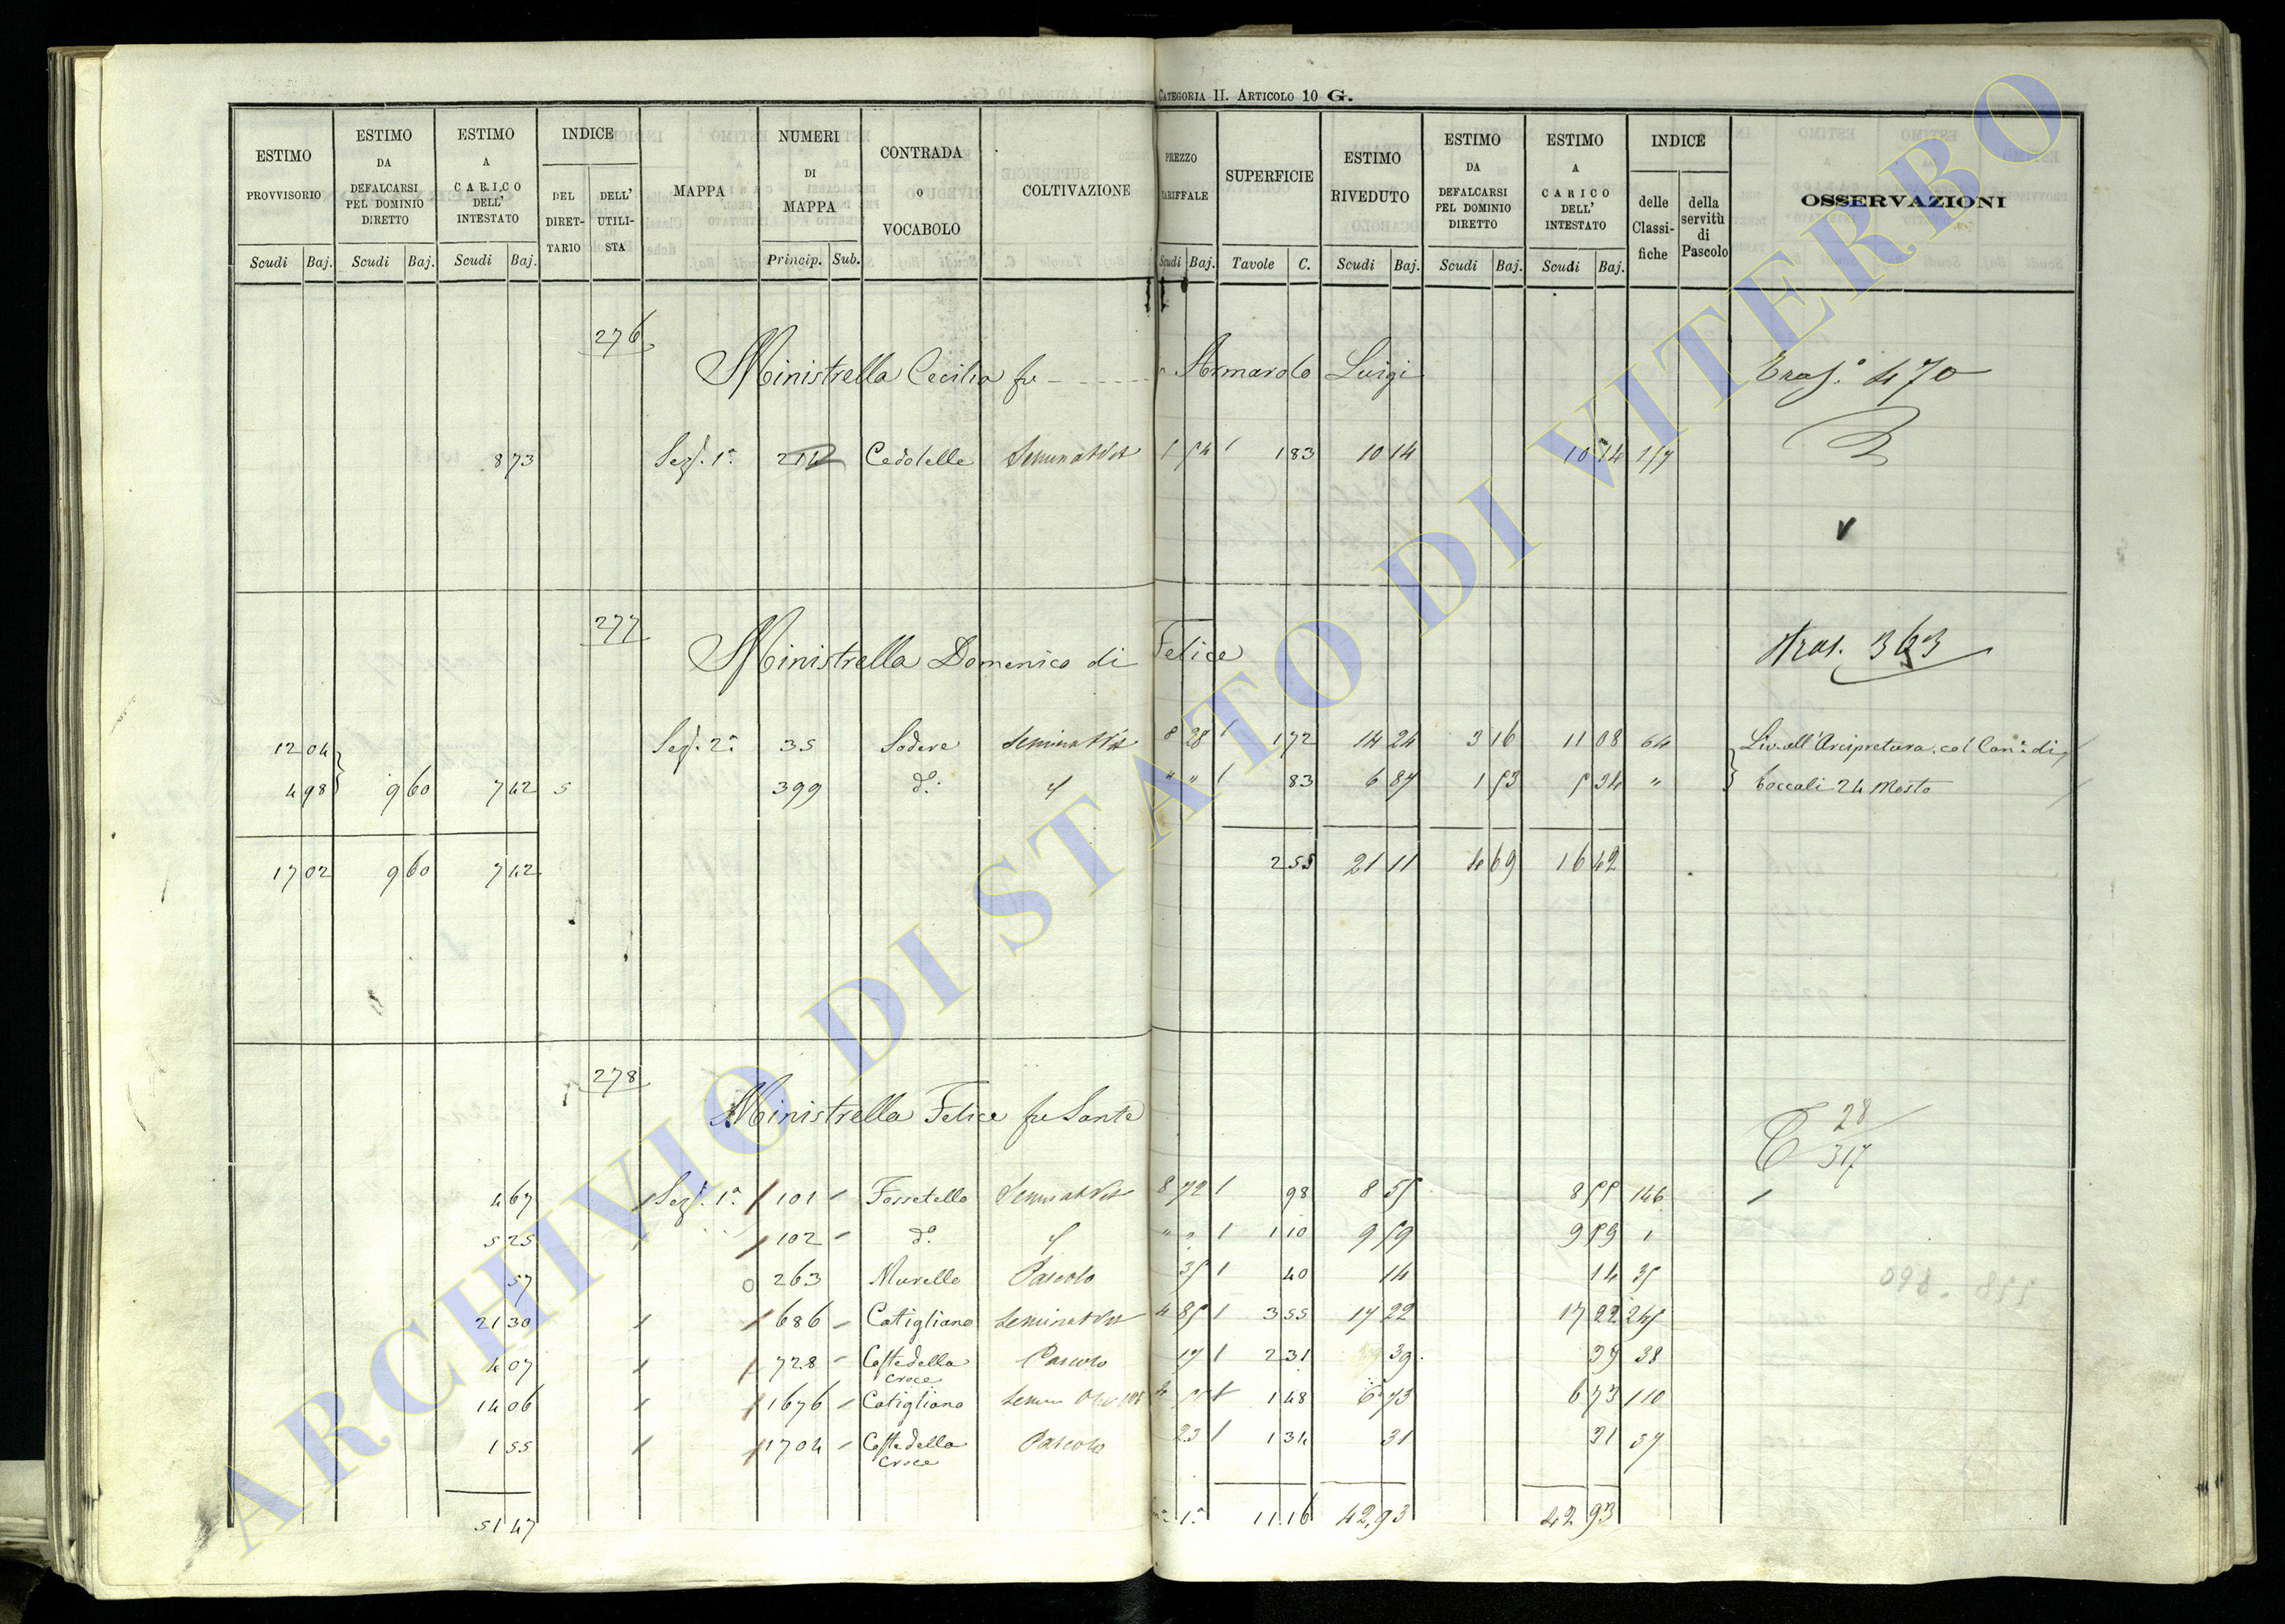 CATEGORIA II. ARTICOLO 10 G.
ESTIMO PROVVISORIO Scudi Baj. ESTIMO DA DEFALCARSI PEL DOMINIO DIRETTO Scudi Baj. ESTIMO A CARICO DELL' INTESTATO Scudi Baj. INDICE DEL DIRET-TARIO DELL' UTILI-STA MAPPA NUMERI DI MAPPA Princip. Sub. CONTRADA O VOCABOLO COLTIVAZIONE PREZZO TARIFFALE Scudi Baj. SUPERFICIE Tavole C. ESTIMO RIVEDUTO Scudi Baj. ESTIMO DA DEFALCARSI PEL DOMINIO DIRETTO Scudi Baj. ESTIMO A CARICO DELL' INTESTATO Scudi Baj. INDICE delle Classi-fiche della servitù di Pascolo OSSERVAZIONI
276
Ministrella Cecilia fu - - - - - Armarolo Luigi 470
8 73 Sez. 1a. 212 Cedolelle Seminat Vit 5 54 1 83 10 14 10 14 117
277
Ministrella Domenico di Felice Tras. 363
12 04 Sez. 2a. 35 Sodere Seminat Vit 8 28 1 72 14 24 3 16 11 08 64 Liv. all'Arcipretura col Can.e di
4 98 9 60 7 42 5 399 do. " " " 83 6 87 1 53 5 34 " boccali 24 Mosto
17 02 9 60 7 42 2 55 21 11 4 69 16 42
278
Ministrella Felice fu Sante 28 317
4 67 Sez. 1a. 101 Fossetello Seminat Vit 8 72 98 8 55 8 55 146
5 25 102 do. " " " 1 10 9 59 9 59
57 263 Murelle Pascolo 35 40 14 14 35
21 30 686 Catigliano Seminat Vit 4 85 3 55 17 22 17 22 245
4 07 728 Coste della Croce Pascolo 17 2 31 39 39 38
14 06 1676 Catigliano Semin 1 48 6 73 6 73 110
1 55 1704 Coste della Croce Pascolo 23 1 34 31 31 37
51 47 11 16 42,93 42 93
558 - 860
ARCHIVIO DI STATO DI VITERBO